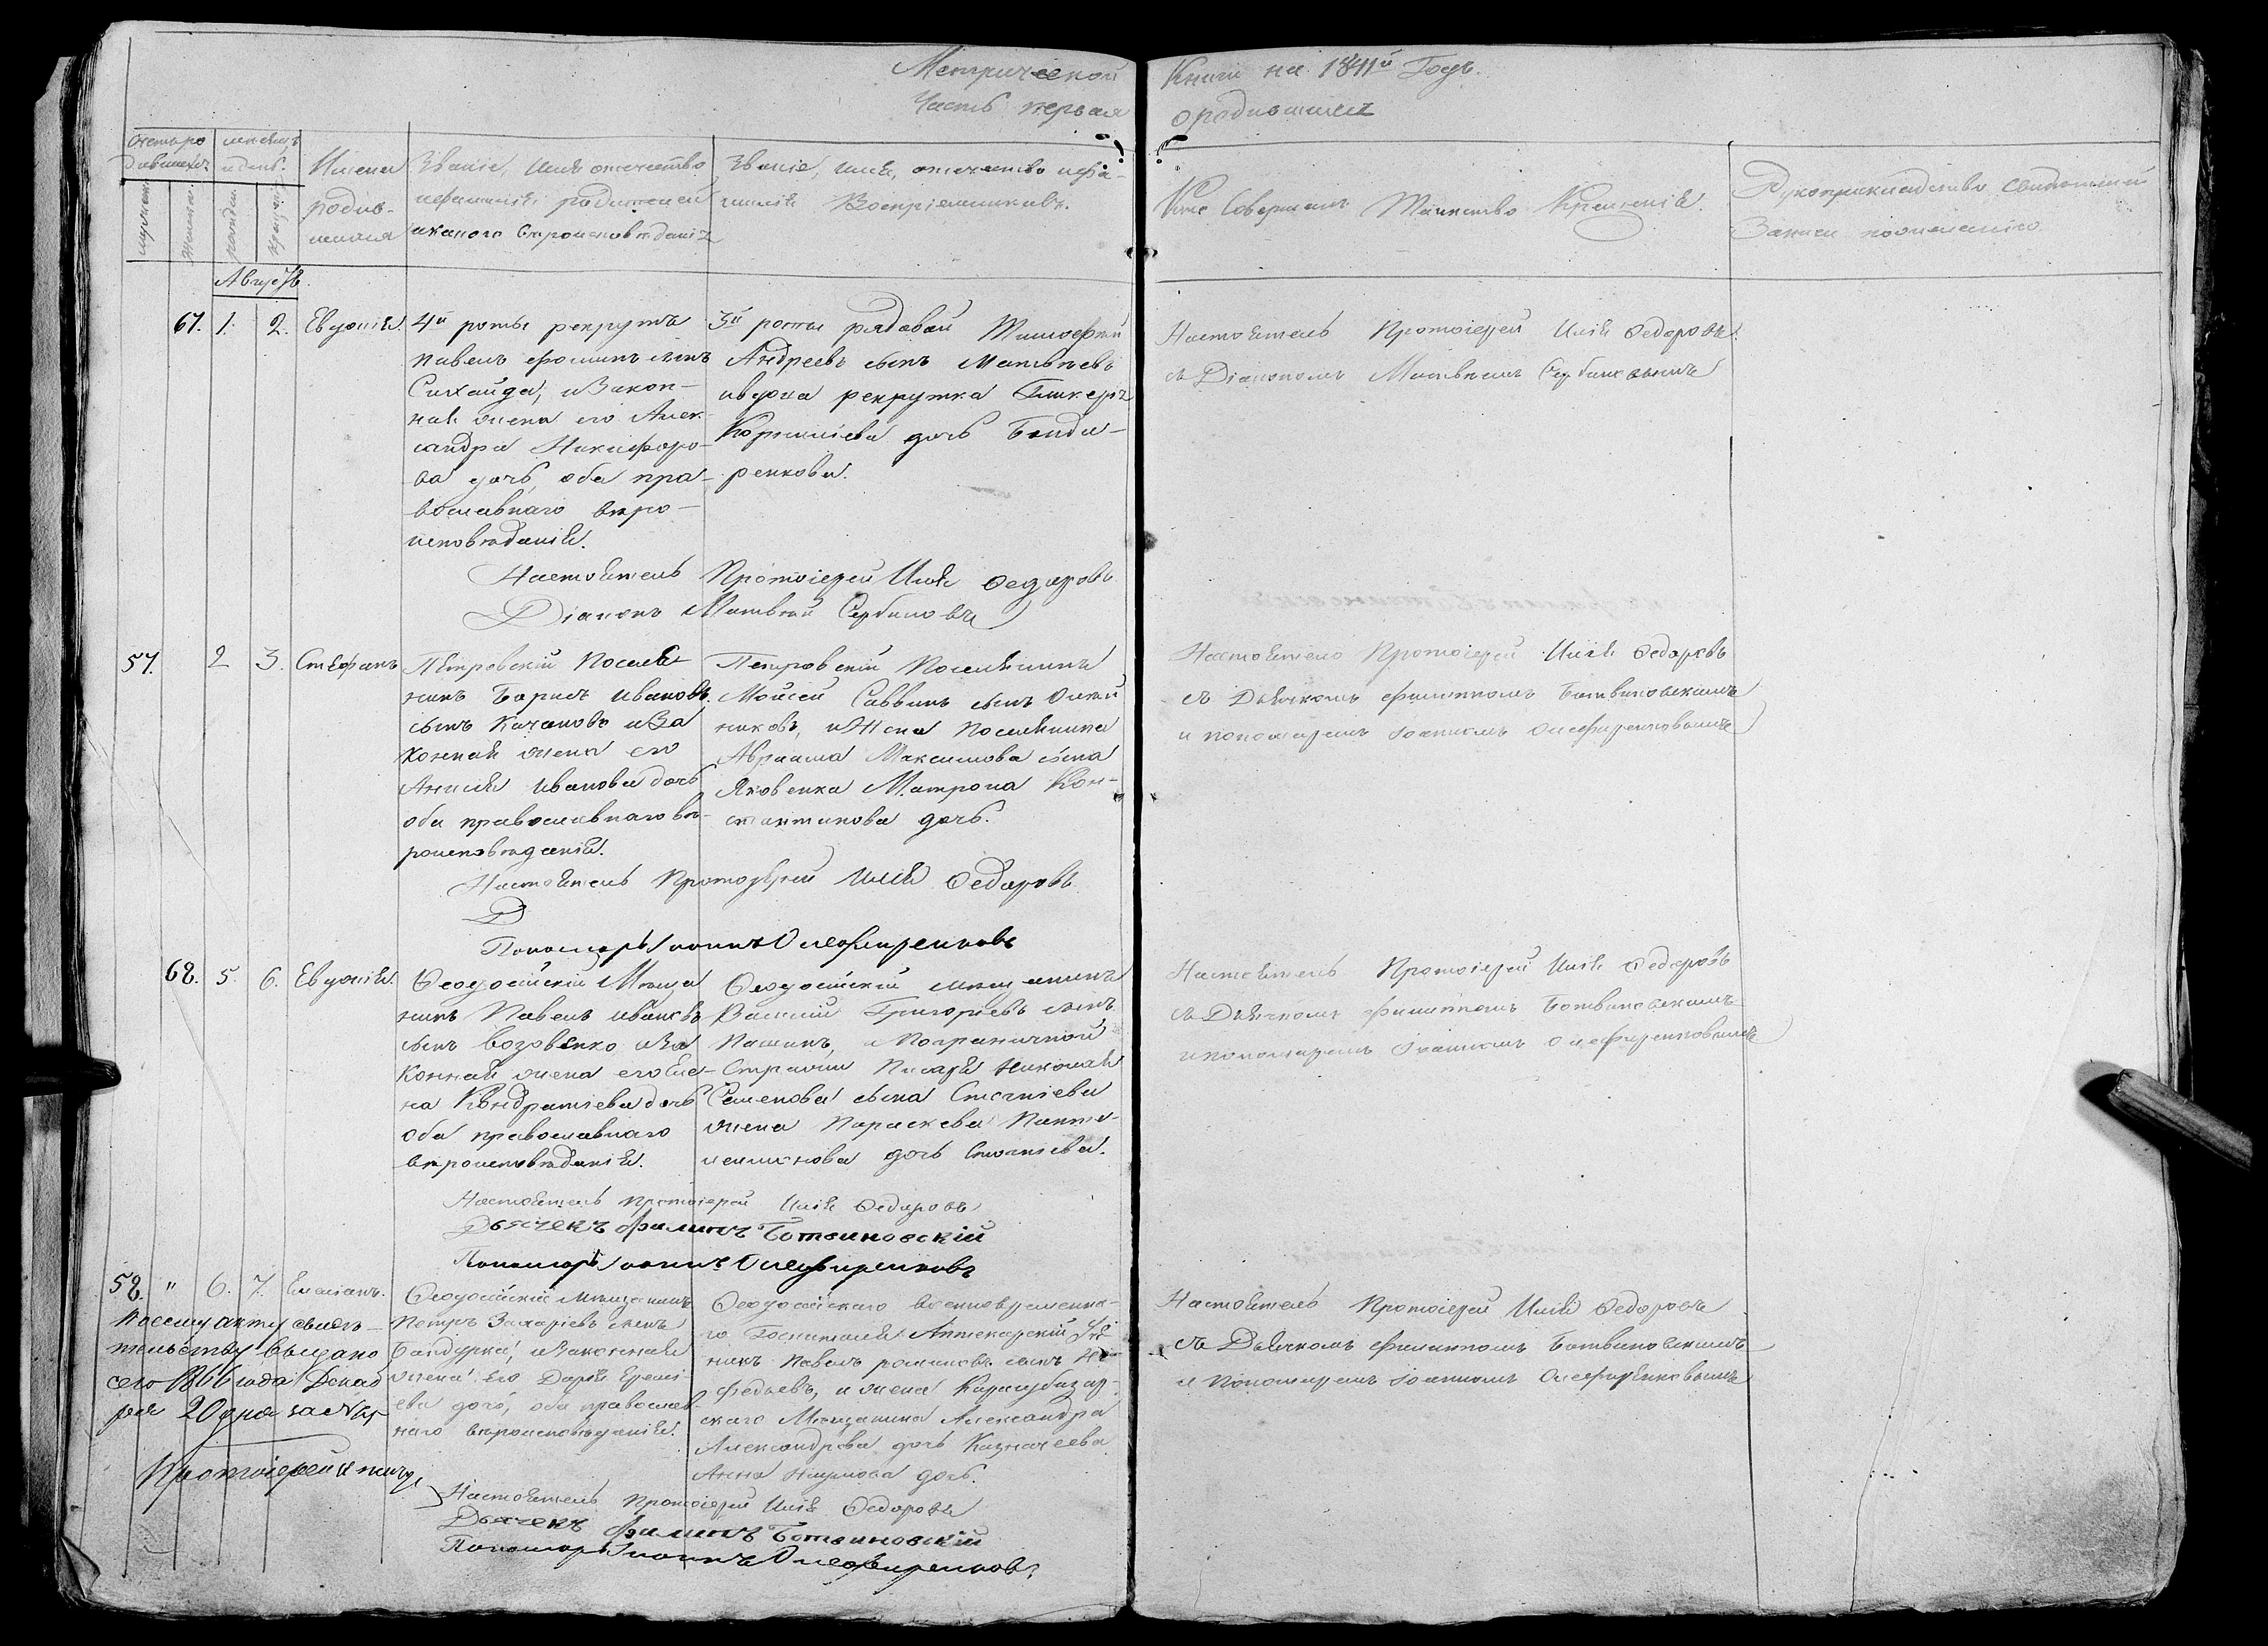 Метрической Книги на 1841й Годъ.
Часть первая о родившихся
Счетъ ро
дившихся
мужеска
женска
месяцъ
и день.
рожден.
крещен.
Имена
родив-
шихся
Званіе, имя отчество
и фамилія родителей
и какого вѣроисповѣданія
Званіе, имя, отчество и фа-
милія Воспріемниковъ.
Кто Совершалъ Таинство Крещенія.
Рукоприкладство Свидѣтелей
Записи по желанію
Августъ.
67. 1. 2. Евдокія.
4й роты рекрутъ
Павелъ Фоминъ сынъ
и Закон-
ная жена его Алек-
сандра Никифоро-
ва дочь, оба пра-
вославнаго вѣро-
исповѣданія.
3й роты рядовой Тимофей
Андреевъ сынъ Матвѣевъ
и вдова рекрутка Гликерія
Корнилиева дочь Бонда-
ренкова.
Настоятель Протоіерей Илія Федоровъ
съ Діакономъ Матвѣемъ Сербиновымъ
Настоятель Протоіерей Илія Федоровъ
Діаконъ Матвей Сербиновъ
57. 2 3. Стефанъ
Петровскій Поселя-
нинъ Борисъ Ивановъ
сынъ Качановъ и За
конная жена его
Анисія Иванова дочь
оба православнаго вѣ-
роисповѣданія.
Петровскій Поселянинъ
Мойсей Саввинъ сынъ Олей
никовъ, и Жена Поселянина
Авраама Максимова сына
Яковенка Матрона Кон-
стантинова дочь.
Настоятель Протоіерей Илія Федоровъ
съ Дьячкомъ Филиппомъ Ботвиновскимъ
и пономаремъ Іоанномъ Олефиренковымъ
Настоятель Протоіерей Илія Федоровъ
Д
Пономарь Іоаннъ Олефиренковъ
68. 5. 6. Евдокія.
Феодосійскій Мѣща
нинъ Павелъ Ивановъ
сынъ Возовенко и За
конная жена его Еле-
на Кондратіева дочь
оба православнаго
вѣроисповѣданія.
Феодосійскій мещанинъ
Василій Григоріевъ сынъ
Пашинъ, и Пограничной
Стражи Писаря Николая
Семенова сына
жена Параскева Панте-
леимонова дочь
Настоятель Протоіерей Илія Федоровъ
съ Дьячкомъ Филиппомъ Ботвиновскимъ
и пономаремъ Іоанномъ Олефиренковымъ
Настоятель Протоіерей Илія Федоровъ
Дьячекъ Филипъ Ботвиновскій
Пономарь Іоаннъ Олефиренковъ
58. " 6. 7. Емиліанъ.
Феодосійскій Мѣщанинъ
Петръ Захаріевъ сынъ
Бандурка, и законная
жена его Дарія Ереми-
ева дочь, оба православ-
наго вѣроисповѣданія.
Феодосійскаго военновременна-
го Госпиталя Аптекарскій уче
никъ Павелъ Романовъ сынъ Не-
федьевъ, и жена Карасубазар-
скаго Мѣщанина Александра
Александрова дочь Казначеева
Анна Наумова дочь.
Настоятель Протоіерей Илія Федоровъ
съ Дьячкомъ Филиппомъ Ботвиновскимъ
и Пономаремъ Іоанномъ Олефиренковымъ
По сему акту свидѣ-
тельство выдано
сего 1866 года Декаб
ря 20 дня за №
Протоіерей
Настоятель Протоіерей Илія Федоровъ
Дьячекъ Филипъ Ботвиновскій
Пономарь Іоаннъ Олефиренковъ